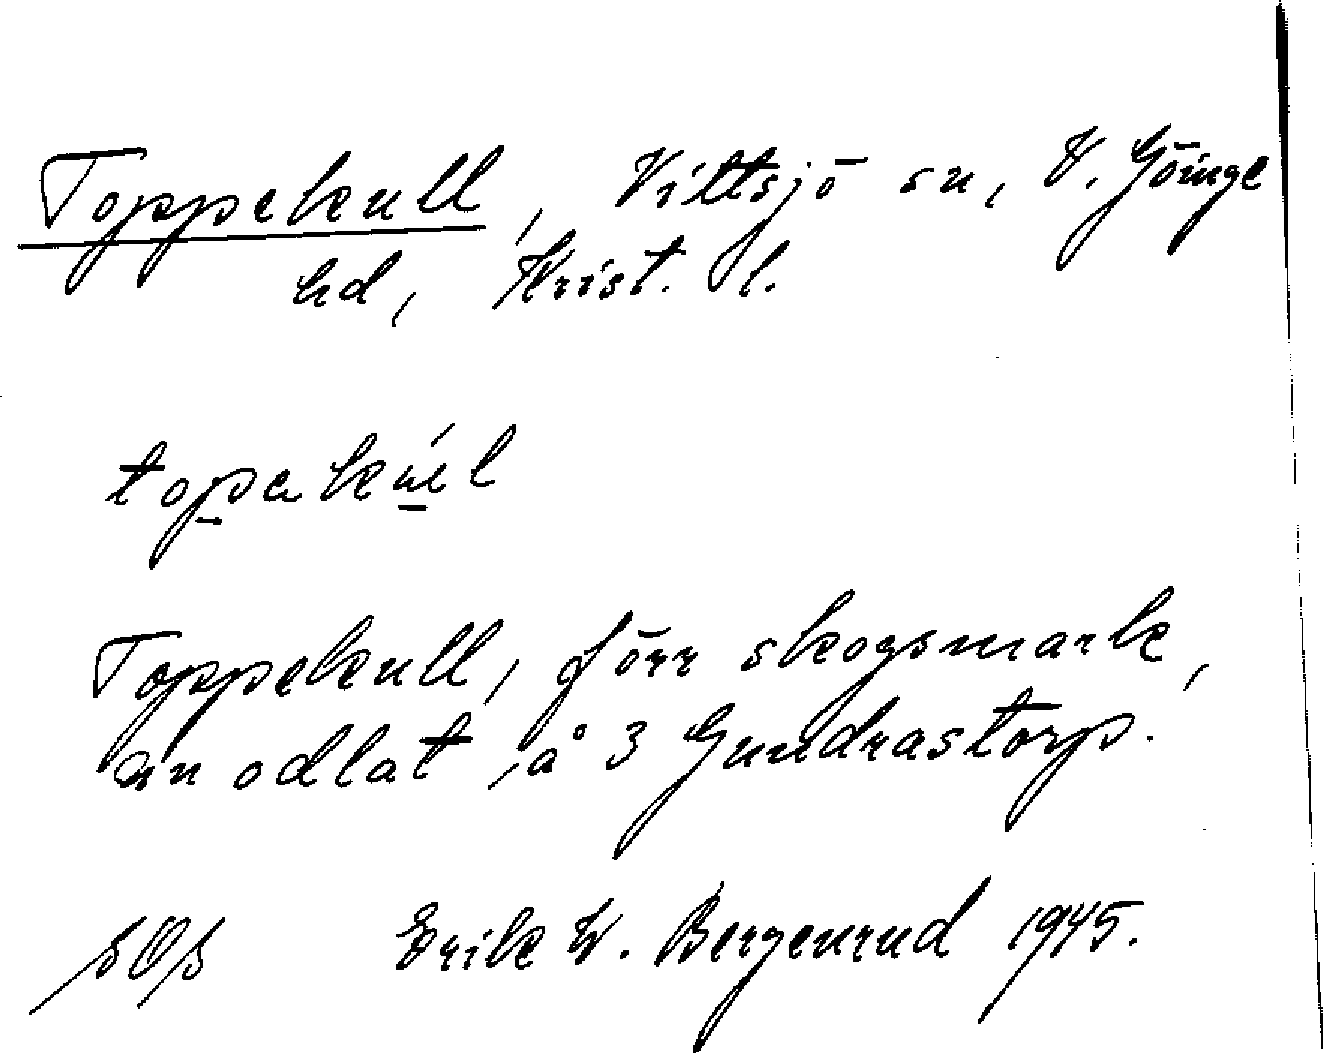 Toppekull, Vittsjö sn, V. Göinge
hd, Krist. l.
Toppekull, förr skogsmark,
nu odlat, å 3 Gundrastorp.
Erik W. Bergenrud 1945.